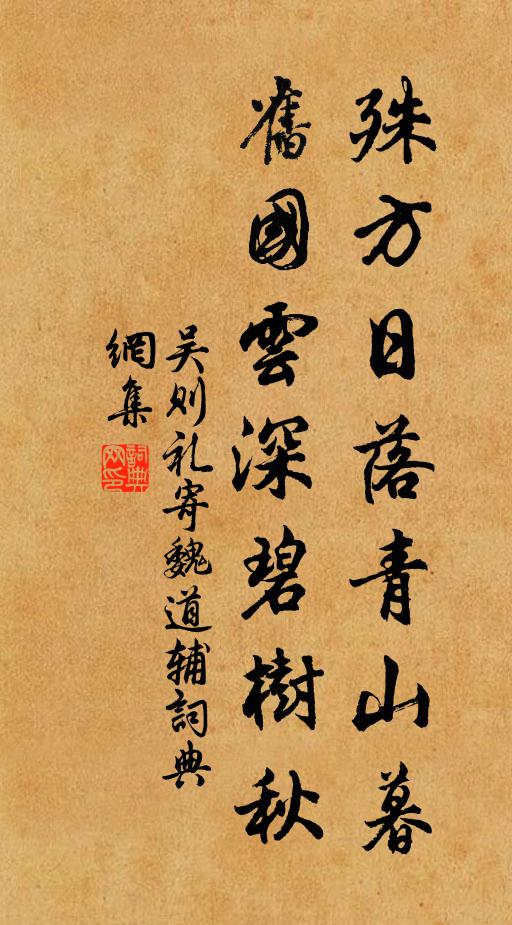 殊方日落青山暮
舊國雲深碧樹秋
吴则礼寄魏道辅詞典
網集
詞典
网印